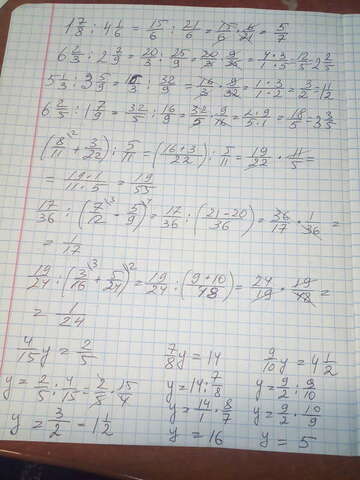 1 7/8 : 4 1/6 = 15/6 : 21/6 = 15/6 · 6/21 = 5/7
6 2/3 : 2 7/9 = 20/3 : 25/9 = 20/3 · 9/25 = 4·3/1·5 = 12/5 = 2 2/5
5 1/3 : 3 5/9 = 16/3 : 32/9 = 16/3 · 9/32 = 1·3/1·2 = 3/2 = 1 1/2
6 2/5 : 1 7/9 = 32/5 : 16/9 = 32/5 · 9/16 = 2·9/5·1 = 18/5 = 3 3/5
(8/11 \2 + 3/22) : 5/11 = (16+3/22) : 5/11 = 19/22 · 11/5 =
= 19·1/11·5 = 19/55
17/36 : (7/12 \3 - 5/9 \4) = 17/36 : (21-20/36) = 36/17 · 1/36 =
= 1/17
19/24 : (3/16 \3 + 5/24 \2) = 19/24 : (9+10/48) = 24/19 · 19/48 =
= 1/24
4/15 y = 2/5 7/8 y = 14 9/10 y = 4 1/2
y = 2/5 : 4/15 = 2/5 · 15/4 y = 14 : 7/8 y = 9/2 : 9/10
y = 3/2 = 1 1/2 y = 14/1 · 8/7 y = 9/2 · 10/9
y = 16 y = 5